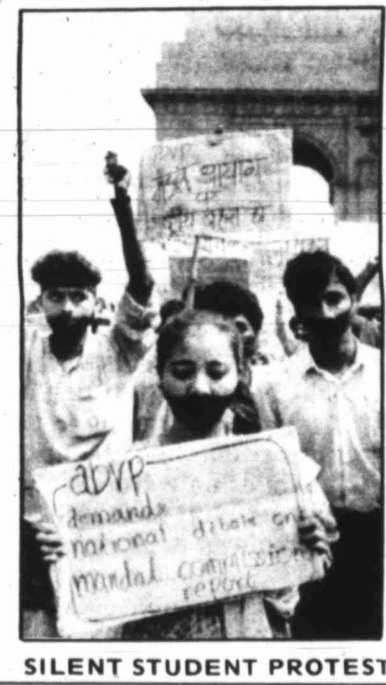 मंडल आयोग
पर
राष्ट्रीय बहस हो
abvp
demands
national dibate on
mandal commission
report
SILENT STUDENT PROTEST